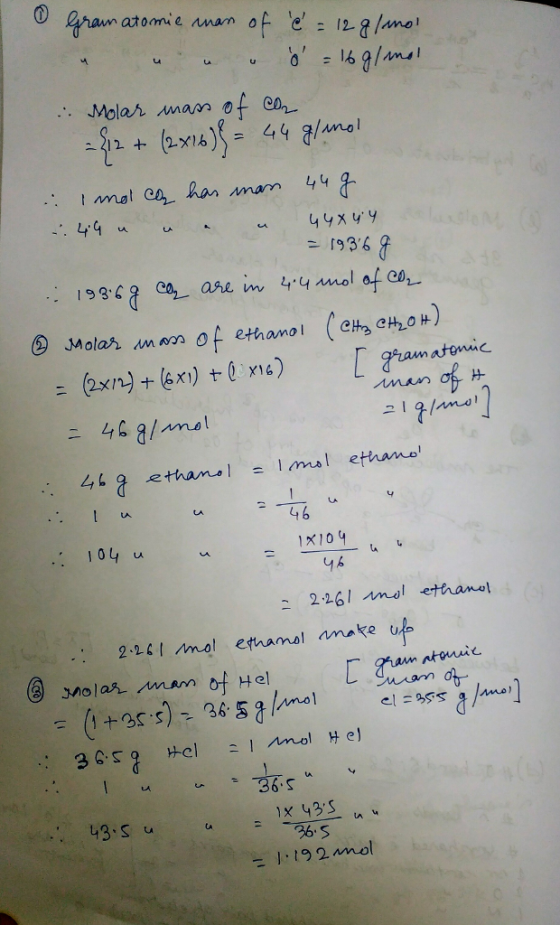 ① Gram atomic mass of 'C' = 12 g/mol
" " " " 'O' = 16 g/mol
∴ Molar mass of CO2
= {12 + (2×16)} = 44 g/mol
∴ 1 mol CO2 has mass 44 g
∴ 4.4 " " " " 44×4.4
= 193.6 g
∴ 193.6 g CO2 are in 4.4 mol of CO2
② Molar mass of ethanol (CH3CH2OH)
= (2×12) + (6×1) + (1×16) [gram atomic
mass of H
= 1 g/mol]
= 46 g/mol
∴ 46 g ethanol = 1 mol ethanol
∴ 1 " " = 1/46 " "
∴ 104 " " = 1×104/46 " "
= 2.261 mol ethanol
∴ 2.261 mol ethanol make up
③ Molar mass of HCl [gram atomic
mass of
Cl = 35.5 g/mol]
= (1+35.5) = 36.5 g/mol
∴ 36.5 g HCl = 1 mol HCl
∴ 1 " " = 1/36.5 " "
∴ 43.5 " " = 1×43.5/36.5 " "
= 1.192 mol